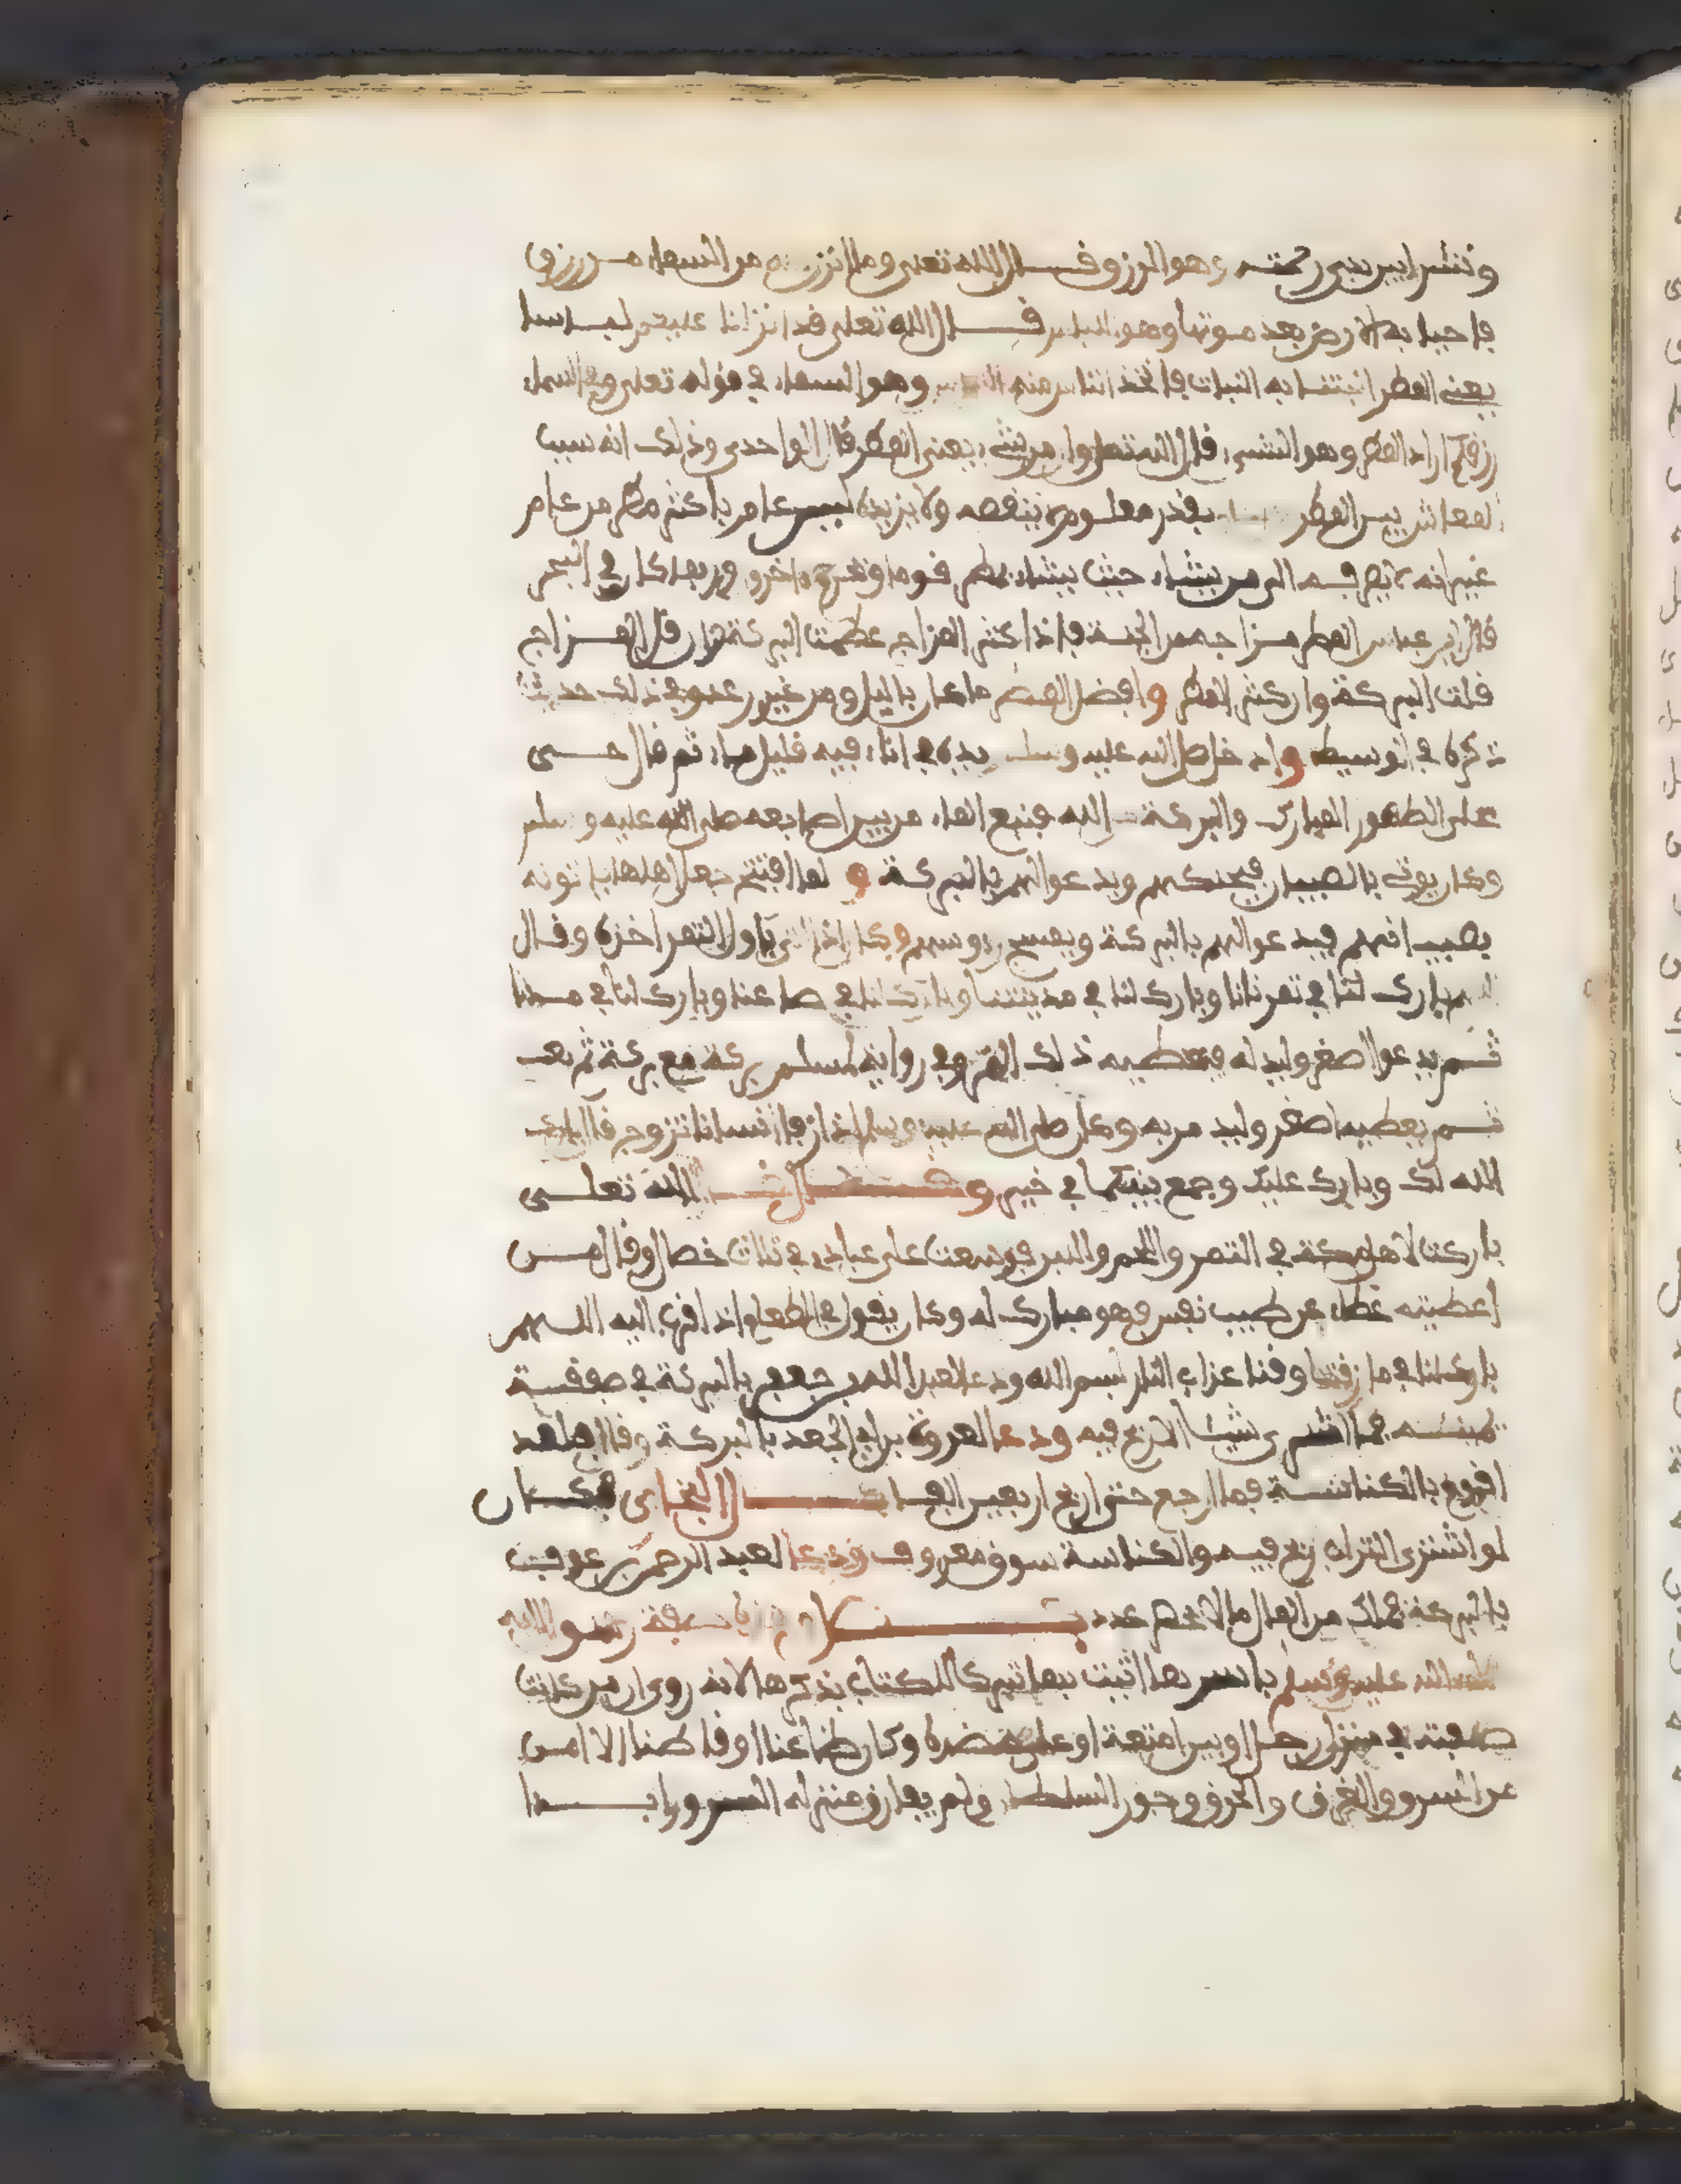 ونشرا بين يدي رحمته وهو الرزق قال الله تعلى وما انزل الله من السماء من رزق
فاحيا به الارض بعد موتها وهو اللباس قال الله تعلى قد انزلنا عليكم لباسا
يعني المطر انبتنا به النبات فاتخذ الناس منه وهو السماء في قوله تعلى وفي السماء
رزقكم اراد المطر وهو الشيء قال الله تعلى وان من شيء يعني المطر قال الواحدي وذلك انه سبب
المعاش يعني المطر بقدر معلوم لا ينقصه ولا يزيده ليس عام باكثر مطر من عام
غير انه يصرفه الى من يشاء حيث يشاء يمطر قوما وتحرم اخرون وربما كان في البحر
قال ابن عباس المطر مزاجه من الجنة فاذا كثر المزاج عظمت البركة وان قل المزاج
قلت البركة وان كثر المطر وافضل المطر ما كان باليل ومن غير رعد وفي ذلك حديث
ذكره في الوسيط وادخل صلى الله عليه وسلم يده في اناء فيه قليل ماء ثم قال حي
على الطهور المبارك والبركة من الله فنبع الماء من بين اصابعه صلى الله عليه وسلم
وكان يوتى بالصبيان فيحنكهم ويدعوا لهم بالبركة و لما افتتح جعل اهلها ياتونه
بصبيانهم فيدعوا لهم بالبركة ويمسح رءوسهم وكان اذا اتي باول الثمر اخذه وقال
اللهم بارك لنا في ثمرنا وبارك لنا في مدينتنا وبارك لنا في صاعنا وبارك لنا في مدنا
ثم يدعوا اصغر وليد له فيعطيه ذلك الثمر وفي رواية لمسلم بركة مع بركة ثم
ثم يعطيه اصغر وليد مر به وكان صلى الله عليه وسلم اذا رفا انسانا تزوج قال بارك
الله لك وبارك عليك وجمع بينكما في خير و قال الله تعلى
باركت لاهل مكة في التمر واللحم والبر فوسعت على عبادي في ثلاث خصال وقال من
اعطيته عطاء عن طيب نفس فهو مبارك له وكان يقول في الطعام اذا قرب اليه اللهم
بارك لنا في ما رزقتنا وقنا عذاب النار بسم الله ودعا لعبد الله بن جعفر بالبركة في صفقة
يمينه فما اشترى شيئا الا ربح فيه ودعا لعروة بن ابي الجعد بالبركة وقال فلقد
اقوم بالكناسة فما ارجع حتى اربح اربعين الفا قال البخاري فكان
لو اشترى التراب ربح فيه والكناسة سوق معروف ودعا لعبد الرحمن بن عوف
بالبركة فملك من المال ما لا يحصر عدد صفة رسول الله
صلى الله عليه وسلم باسر بها اثبت بها تبركا للكتاب بذكرها لانه روي ان من كانت
صفته في منزل رجل او بين امتعة او على عضده وكان ظاعنا او قاطنا الا امن
من السرق والغرق والحرق وجور السلطان ولم يفارق منزله السرور ابدا